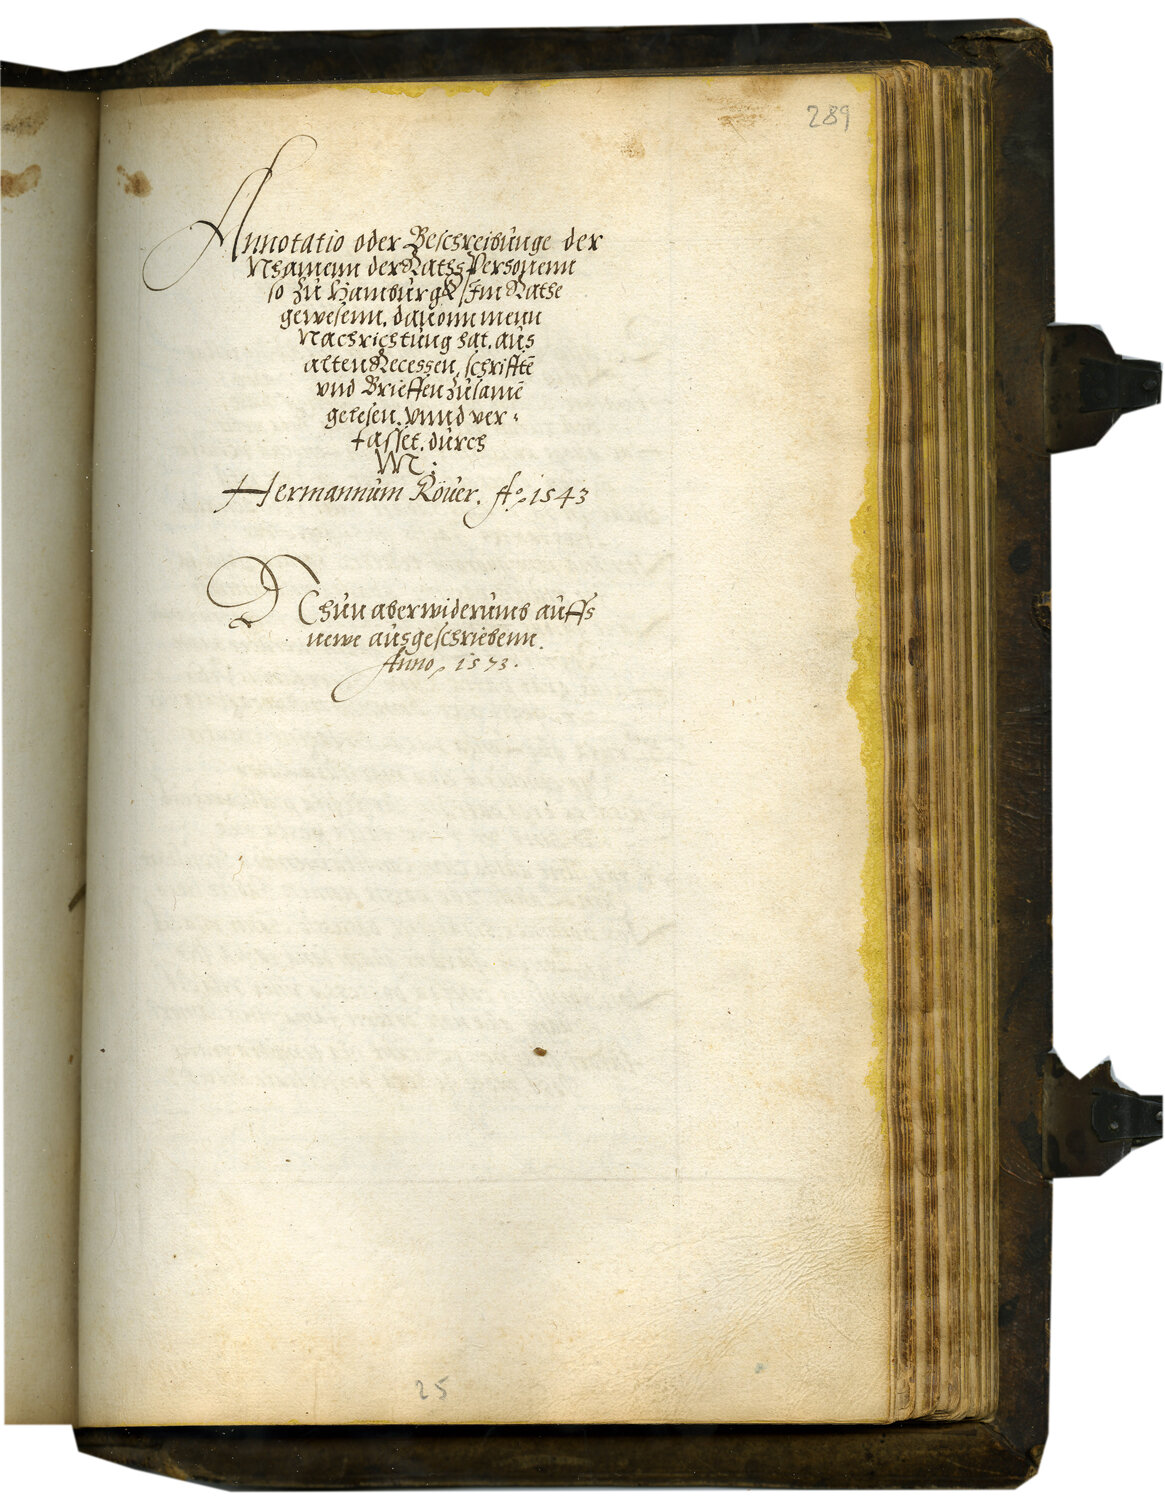 289
Annotatio oder Beschreibunge der
Nhamenn der Raths Personenn
so zu Hamburgk Im Rathe
gewesenn, dauonn menn
Nachrichtung hat, aus
alten Recessen, schrifftē
vnd Brieffen zusamē
gelesen, vnnd ver-
fasset, durch
M:
Hermannum Röuer. A°. 1543
Thun aber widerumb auffs
newe ausgeschriebenn.
Anno, 1573.
25